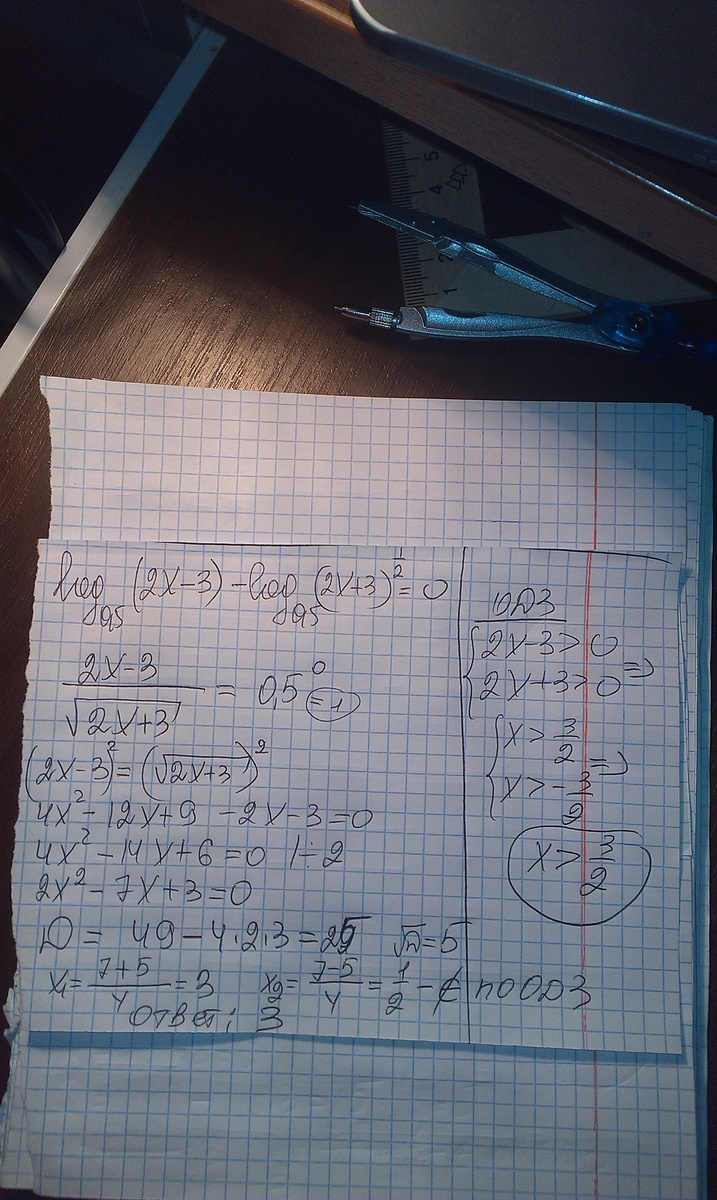 log₀,₅(2x-3) - log₀,₅(2x+3)^(1/2) = 0
(2x-3)/√(2x+3) = 0,5⁰ = 1
(2x-3)² = (√(2x+3))²
4x² - 12x + 9 - 2x - 3 = 0
4x² - 14x + 6 = 0 | ÷ 2
2x² - 7x + 3 = 0
D = 49 - 4·2·3 = 25 √D = 5
x₁ = (7+5)/4 = 3 x₂ = (7-5)/4 = 1/2 - ∉ по ОДЗ
Ответ: 3
ОДЗ
{ 2x-3 > 0
2x+3 > 0 =>
{ x > 3/2
x > -3/2 =>
x > 3/2
1 2 4 5